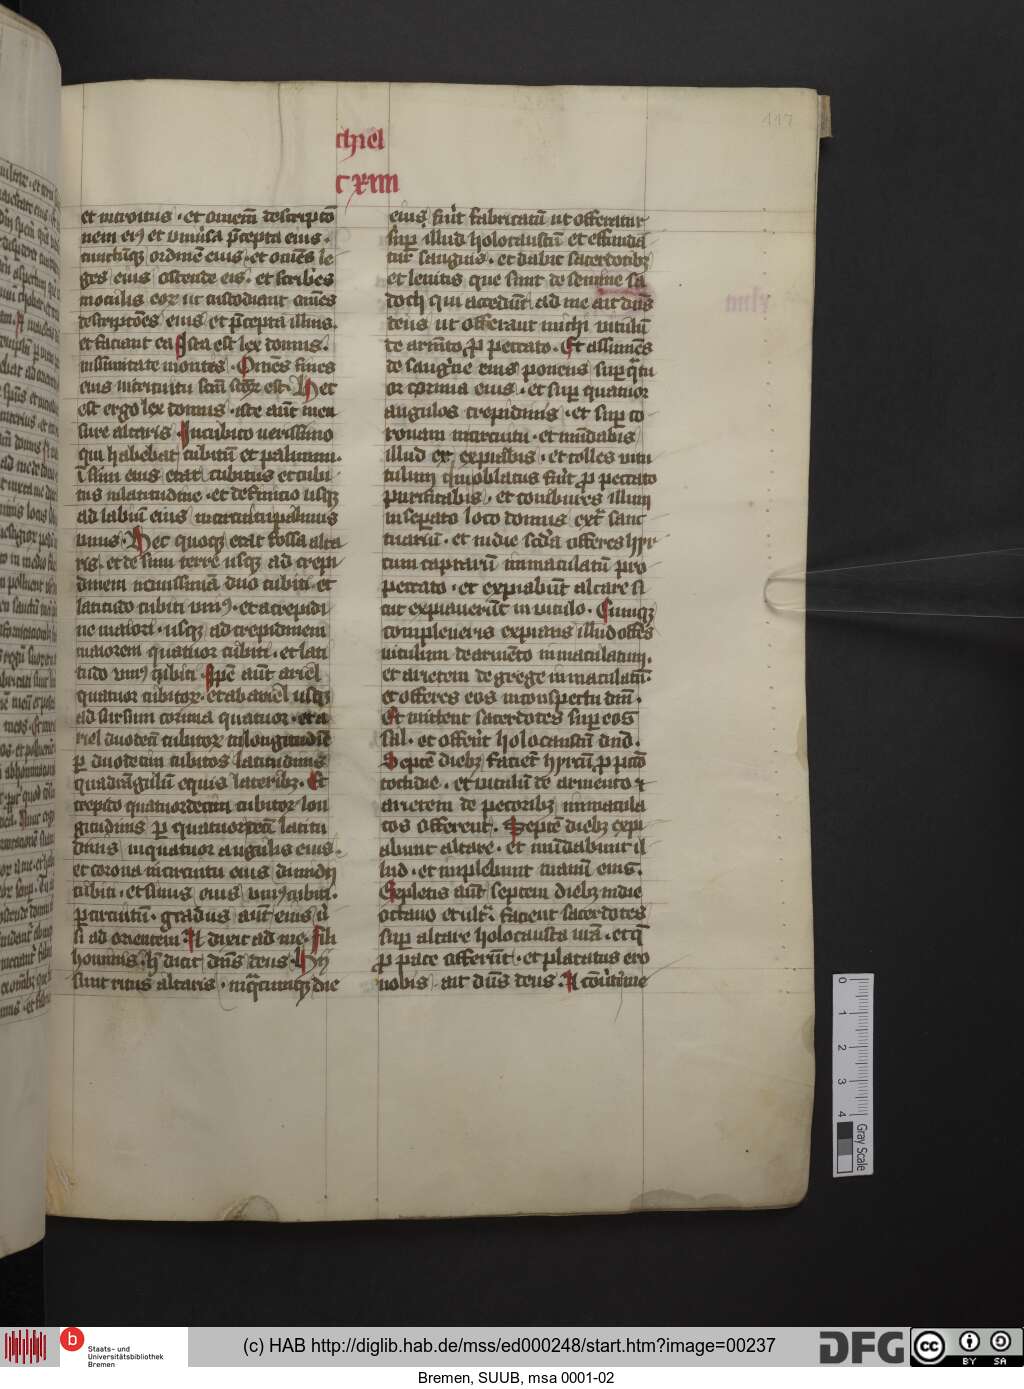 chiel
C xliii
447
et introitus · et omnem descriptio
nem eius et universa precepta eius ·
cunctumque ordinem eius · et omnes le
ges eius ostende eis · et scribes in
oculis eorum ut custodiant omnes
descriptiones eius et precepta illius ·
et faciant ea Ista est lex domus ·
in summitate montis · Omnes fines
eius in circuitu sanctum sanctorum est · Hec
est ergo lex domus · iste autem men
sure altaris In cubito verissimo
qui habebat cubitum et palmum ·
in sinu eius erat cubitus et cubi
tus in latitudine · et definicio usque
ad labium eius in circuitu palmus
unus · Hec quoque erat fossa alta
ris · et de sinu terre usque ad crepi
dinem novissimam duo cubiti et
latitudo cubiti unius · et a crepidi
ne maiori · usque ad crepidinem
maiorem quatuor cubiti · et lati
tudo unius cubiti · Ipse autem ariel
quatuor cubitorum · et ab ariel usque
ad sursum cornua quatuor · et a
riel duodecim cubitorum in longitudine
per duodecim cubitos latitudinis
quadrangulum equis lateribus · Et
crepido quatuordecim cubitorum lon
gitudinis per quatuordecim latitu
dinis in quatuor angulis eius ·
et corona in circuitu eius dimidii
cubiti · et sinus eius unius cubiti ·
per circuitum · gradus autem eius ver
si ad orientem Et dixit ad me · fili
hominis · hec dicit dominus deus · Hii
sunt ritus altaris · in quacumque die
eius fuerit fabricatum ut offeratur
super illud holocaustum et effunda
tur sanguis · et dabis sacerdotibus
et levitis que sunt de semine sa
doch qui accedunt ad me ait dominus
deus ut offerant michi vitulum
de armento pro peccato · Et assumens
de sanguine eius pones super quatu
or cornua eius · et super quatuor
angulos crepidinis · et super co
ronam in circuitu · et mundabis
illud et expiabis · et tolles vitu
tulum qui oblatus fuerit pro peccato
purificabis · et combures illum
in seperato loco domus extra sanc
tuarium · et in die secunda offeres hyr
cum caprarum immaculatum pro
peccato · et expiabunt altare si
cut expiaverunt in vitulo · Cumque
compleveris expians illud offeres
vitulum de armento immaculatum ·
et arietem de grege immaculatum ·
et offeres eos in conspectu domini ·
Et mittent sacerdotes super eos
sal · et offerent holocaustum domino ·
Septem diebus faciet hyrcum pro peccato
cottidie · et vitulum de armento et
arietem de pecoribus immacula
tos offerent · Septem diebus expi
abunt altare · et mundabunt il
lud · et implebunt manum eius ·
Expletis autem septem diebus in die
octavo et ultra · facient sacerdotes
super altare holocausta vestra · et que
pro pace offerunt · et placatus ero
vobis · ait dominus deus · Et convertit me
0 1 2 3 4
Gray Scale
Staats- und
Universitätsbibliothek
Bremen
(c) HAB http://diglib.hab.de/mss/ed000248/start.htm?image=00237
DFG
cc BY SA
Bremen, SUUB, msa 0001-02